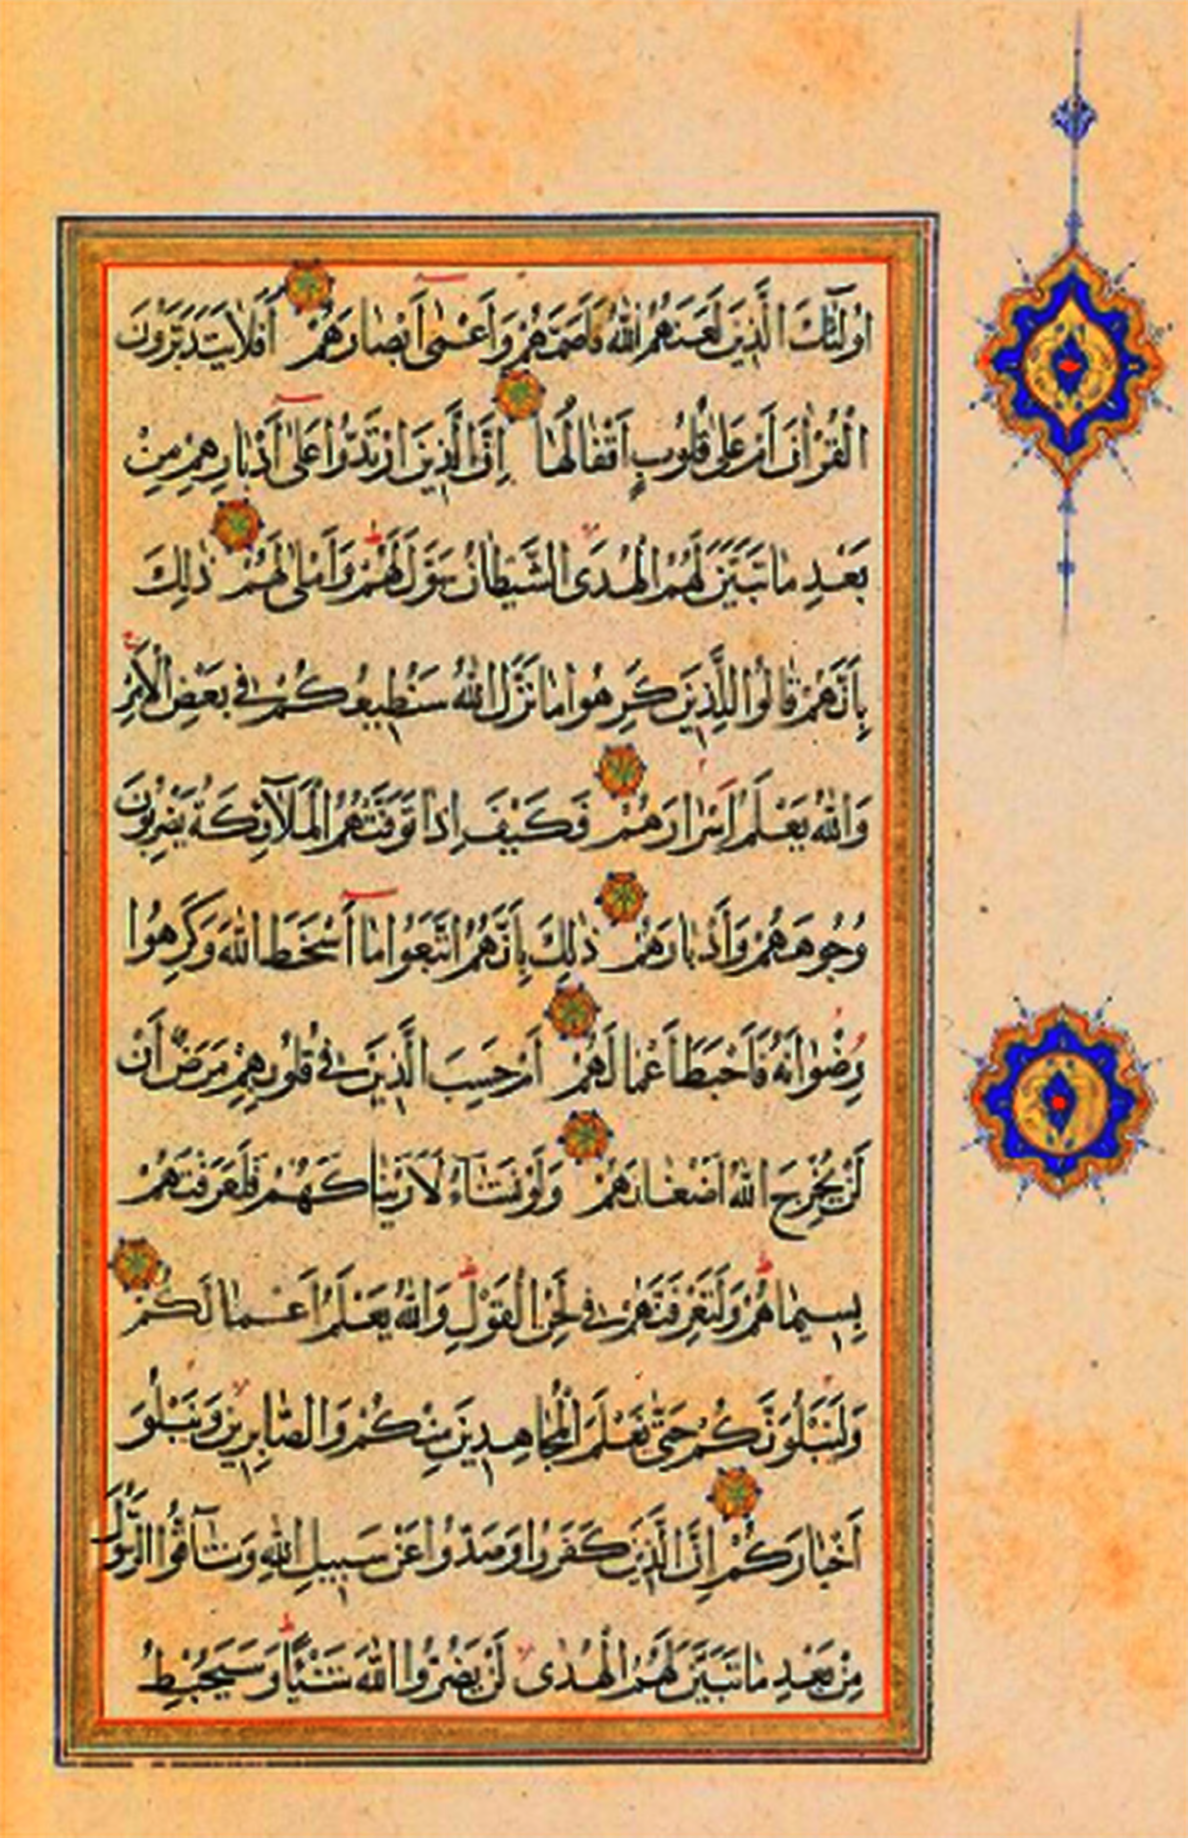 اُولٰٓئِكَ الَّذِينَ لَعَنَهُمُ اللّٰهُ فَاَصَمَّهُمْ وَاَعْمٰى اَبْصَارَهُمْ اَفَلَا يَتَدَبَّرُونَ
الْقُرْاٰنَ اَمْ عَلٰى قُلُوبٍ اَقْفَالُهَا اِنَّ الَّذِينَ ارْتَدُّوا عَلٰى اَدْبَارِهِمْ مِنْ
بَعْدِ مَا تَبَيَّنَ لَهُمُ الْهُدَى الشَّيْطَانُ سَوَّلَ لَهُمْ وَاَمْلٰى لَهُمْ ذٰلِكَ
بِاَنَّهُمْ قَالُوا لِلَّذِينَ كَرِهُوا مَا نَزَّلَ اللّٰهُ سَنُطِيعُكُمْ فِي بَعْضِ الْاَمْرِ
وَاللّٰهُ يَعْلَمُ اِسْرَارَهُمْ فَكَيْفَ اِذَا تَوَفَّتْهُمُ الْمَلَآئِكَةُ يَضْرِبُونَ
وُجُوهَهُمْ وَاَدْبَارَهُمْ ذٰلِكَ بِاَنَّهُمُ اتَّبَعُوا مَا اَسْخَطَ اللّٰهَ وَكَرِهُوا
رِضْوَانَهُ فَاَحْبَطَ اَعْمَالَهُمْ اَمْ حَسِبَ الَّذِينَ فِي قُلُوبِهِمْ مَرَضٌ اَنْ
لَنْ يُخْرِجَ اللّٰهُ اَضْغَانَهُمْ وَلَوْ نَشَآءُ لَاَرَيْنَاكَهُمْ فَلَعَرَفْتَهُمْ
بِسِيمَاهُمْ وَلَتَعْرِفَنَّهُمْ فِي لَحْنِ الْقَوْلِ وَاللّٰهُ يَعْلَمُ اَعْمَالَكُمْ
وَلَنَبْلُوَنَّكُمْ حَتّٰى نَعْلَمَ الْمُجَاهِدِينَ مِنْكُمْ وَالصَّابِرِينَ وَنَبْلُوَ
اَخْبَارَكُمْ اِنَّ الَّذِينَ كَفَرُوا وَصَدُّوا عَنْ سَبِيلِ اللّٰهِ وَشَآقُّوا الرَّسُولَ
مِنْ بَعْدِ مَا تَبَيَّنَ لَهُمُ الْهُدٰى لَنْ يَضُرُّوا اللّٰهَ شَيْئًا وَسَيُحْبِطُ